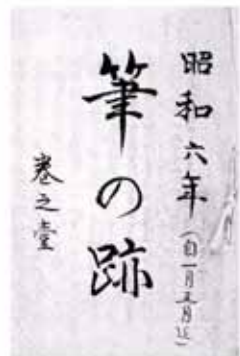 昭和六年(自一月五月迄)
筆の跡
巻之壹